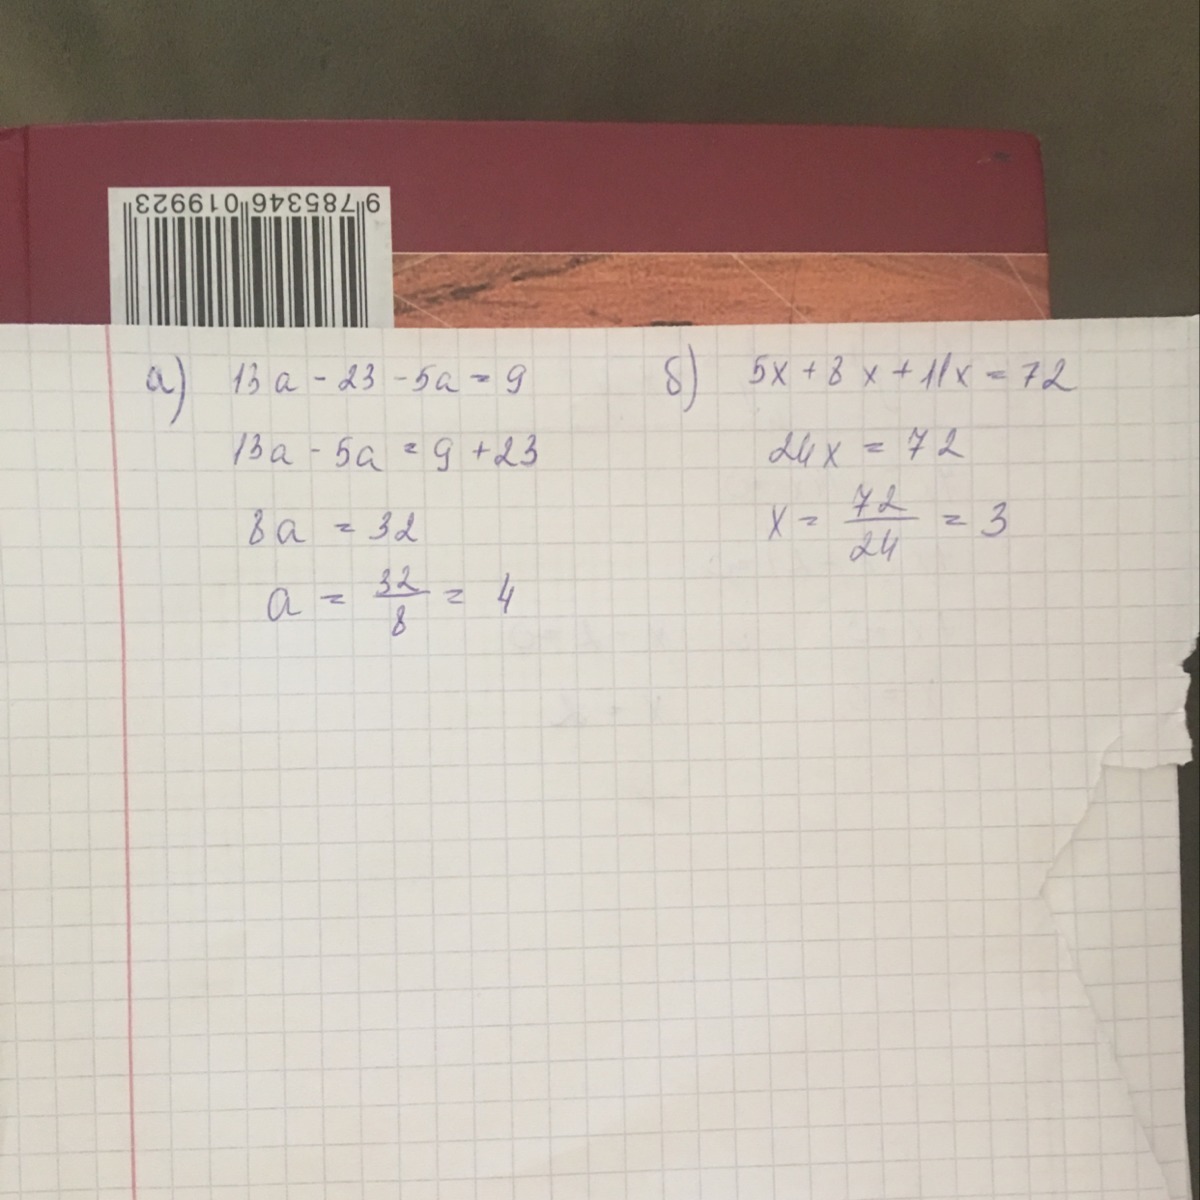 9 785346 019923
а) 13a - 23 - 5a = 9
13a - 5a = 9 + 23
8a = 32
a = 32/8 = 4
б) 5x + 8x + 11x = 72
24x = 72
x = 72/24 = 3